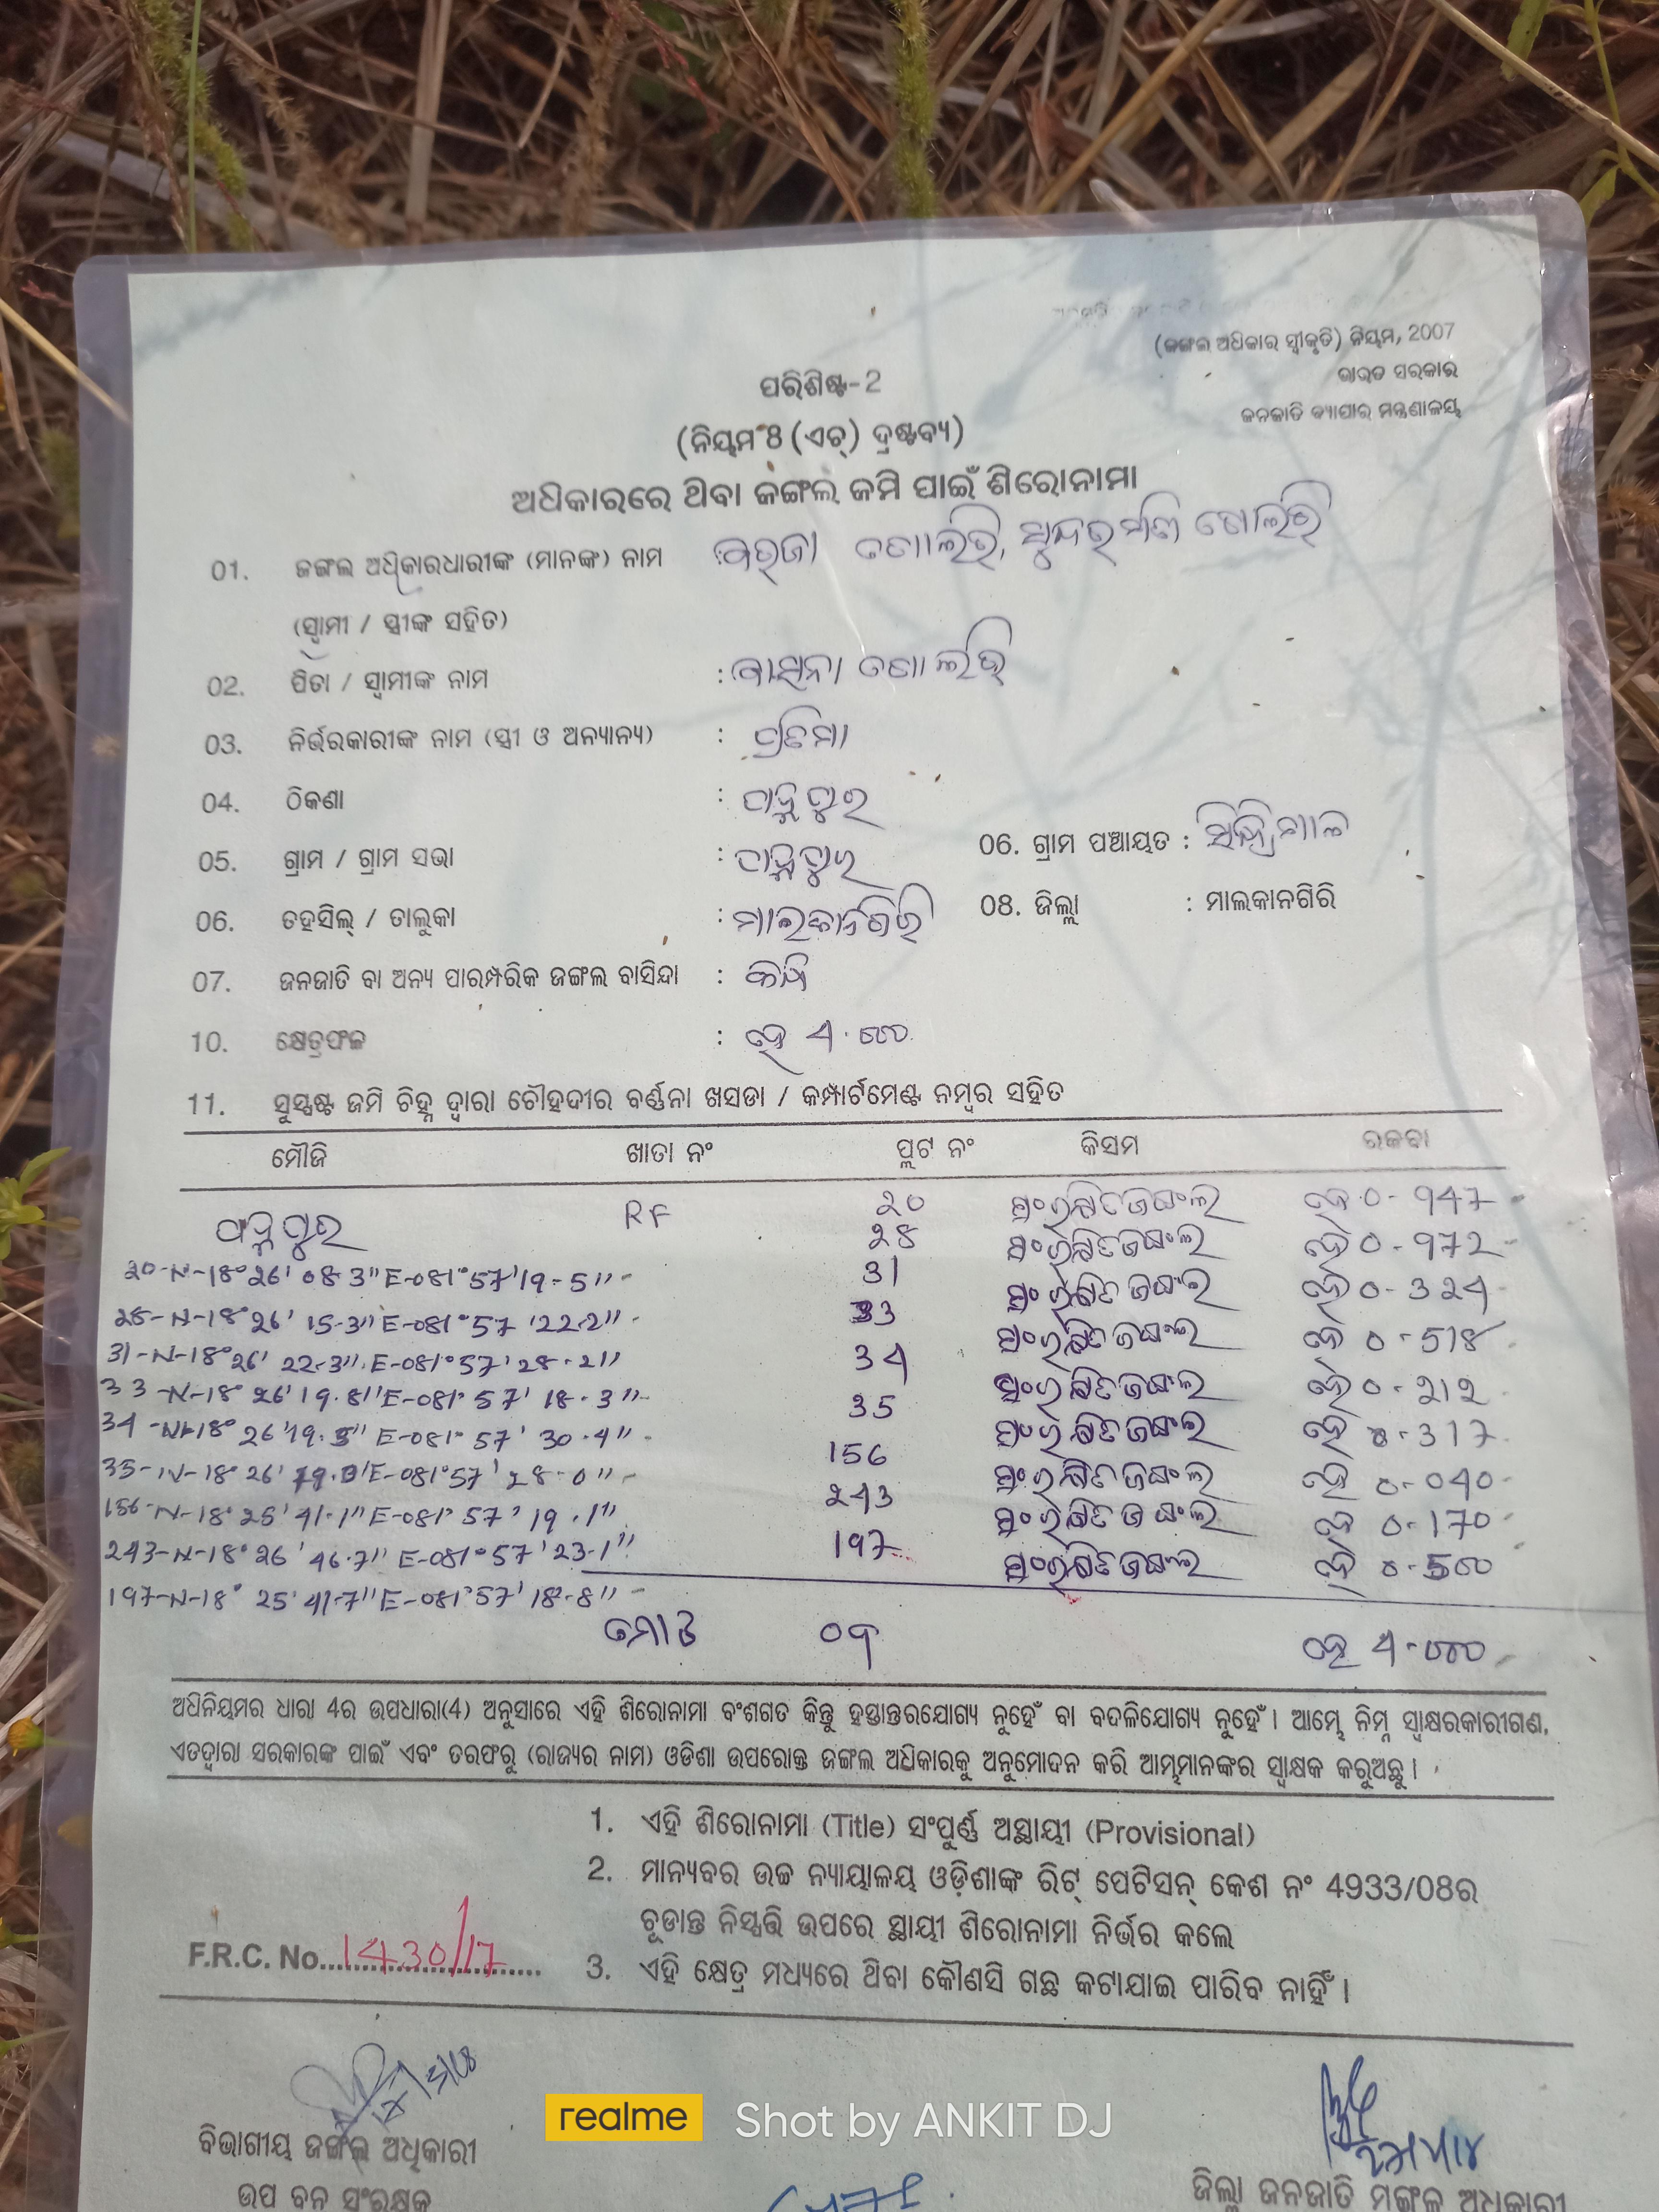 (ଜଙ୍ଗଲ ଅଧିକାର ସ୍ୱୀକୃତି) ନିୟମ, 2007
ଭାରତ ସରକାର
ଜନଜାତି ବ୍ୟାପାର ମନ୍ତ୍ରଣାଳୟ
ପରିଶିଷ୍ଟ-2
(ନିୟମ 8 (ଏଚ୍) ଦ୍ରଷ୍ଟବ୍ୟ)
ଅଧିକାରରେ ଥିବା ଜଙ୍ଗଲ ଜମି ପାଇଁ ଶିରୋନାମା
01. ଜଙ୍ଗଲ ଅଧିକାରଧାରୀଙ୍କ (ମାନଙ୍କ) ନାମ
(ସ୍ୱାମୀ / ସ୍ତ୍ରୀଙ୍କ ସହିତ)
02. ପିତା / ସ୍ୱାମୀଙ୍କ ନାମ :
03. ନିର୍ଭରକାରୀଙ୍କ ନାମ (ସ୍ତ୍ରୀ ଓ ଅନ୍ୟାନ୍ୟ) : ପ୍ରତିମା
04. ଠିକଣା :
05. ଗ୍ରାମ / ଗ୍ରାମ ସଭା : 06. ଗ୍ରାମ ପଞ୍ଚାୟତ :
06. ତହସିଲ୍ / ତାଲୁକା : ମାଲକାନଗିରି 08. ଜିଲ୍ଲା : ମାଲକାନଗିରି
07. ଜନଜାତି ବା ଅନ୍ୟ ପାରମ୍ପରିକ ଜଙ୍ଗଲ ବାସିନ୍ଦା :
10. କ୍ଷେତ୍ରଫଳ : ହେ 4.000
11. ସୁସ୍ପଷ୍ଟ ଜମି ଚିହ୍ନ ଦ୍ୱାରା ଚୌହଦୀର ବର୍ଣ୍ଣନା ଖସଡା / କମ୍ପାର୍ଟମେଣ୍ଟ ନମ୍ବର ସହିତ
ମୌଜି ଖାତା ନଂ ପ୍ଲଟ ନଂ କିସମ ରକବା
RF 20 ସଂରକ୍ଷିତ ଜଙ୍ଗଲ ହେ 0-947
28 ସଂରକ୍ଷିତ ଜଙ୍ଗଲ ହେ 0-972
20-N-18° 26' 08.3" E-081° 57' 19-5"
31 ସଂରକ୍ଷିତ ଜଙ୍ଗଲ ହେ 0-324
28-N-18° 26' 15-3" E-081° 57' 22.2"
33 ସଂରକ୍ଷିତ ଜଙ୍ଗଲ ହେ 0-518
31-N-18° 26' 22-3" E-081° 57' 28.2"
34 ସଂରକ୍ଷିତ ଜଙ୍ଗଲ ହେ 0-212
33-N-18° 26' 19.8" E-081° 57' 18.3"
35 ସଂରକ୍ଷିତ ଜଙ୍ଗଲ ହେ 0-317
34-N-18° 26' E-081° 57' 30.4"
156 ସଂରକ୍ଷିତ ଜଙ୍ଗଲ ହେ 0-040
35-N-18° 26' E-081° 57' 28-0"
243 ସଂରକ୍ଷିତ ଜଙ୍ଗଲ ହେ 0-170
156-N-18° 25' 41.1" E-081° 57' 19.1"
197 ସଂରକ୍ଷିତ ଜଙ୍ଗଲ ହେ 0-500
243-N-18° 26' 46.7" E-081° 57' 23-1"
197-N-18° 25' 41-7" E-081° 57' 18-8"
ମୋଟ ହେ 4-000
ଅଧିନିୟମର ଧାରା 4ର ଉପଧାରା(4) ଅନୁସାରେ ଏହି ଶିରୋନାମା ବଂଶଗତ କିନ୍ତୁ ହସ୍ତାନ୍ତରଯୋଗ୍ୟ ନୁହେଁ ବା ବଦଳିଯୋଗ୍ୟ ନୁହେଁ । ଆମ୍ଭେ ନିମ୍ନ ସ୍ୱାକ୍ଷରକାରୀଗଣ,
ଏତଦ୍ୱାରା ସରକାରଙ୍କ ପାଇଁ ଏବଂ ତରଫରୁ (ରାଜ୍ୟର ନାମ) ଓଡିଶା ଉପରୋକ୍ତ ଜଙ୍ଗଲ ଅଧିକାରକୁ ଅନୁମୋଦନ କରି ଆମ୍ଭମାନଙ୍କର ସ୍ୱାକ୍ଷକ କରୁଅଛୁ ।
1. ଏହି ଶିରୋନାମା (Title) ସଂପୂର୍ଣ୍ଣ ଅସ୍ଥାୟୀ (Provisional)
2. ମାନ୍ୟବର ଉଚ୍ଚ ନ୍ୟାୟାଳୟ ଓଡ଼ିଶାଙ୍କ ରିଟ୍ ପେଟିସନ୍ କେଶ ନଂ 4933/08ର
ଚୂଡାନ୍ତ ନିସ୍ପତ୍ତି ଉପରେ ସ୍ଥାୟୀ ଶିରୋନାମା ନିର୍ଭର କଲେ
F.R.C. No. 1430/17
3. ଏହି କ୍ଷେତ୍ର ମଧ୍ୟରେ ଥିବା କୌଣସି ଗଛ କଟାଯାଇ ପାରିବ ନାହିଁ ।
realme Shot by ANKIT DJ
ବିଭାଗୀୟ ଜଙ୍ଗଲ ଅଧିକାରୀ
ଉପ ବନ ସଂରକ୍ଷକ
ଜିଲ୍ଲା ଜନଜାତି ମଙ୍ଗଳ ଅଧିକାରୀ